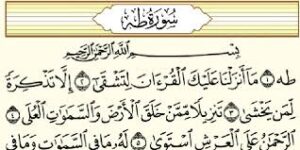 سُورَةُ طه
بِسْمِ اللَّهِ الرَّحْمَٰنِ الرَّحِيمِ
طه ١ مَا أَنزَلْنَا عَلَيْكَ الْقُرْءَانَ لِتَشْقَىٰ ٢ إِلَّا تَذْكِرَةً
لِّمَن يَخْشَىٰ ٣ تَنزِيلًا مِّمَّنْ خَلَقَ الْأَرْضَ وَالسَّمَٰوَٰتِ الْعُلَى ٤
الرَّحْمَٰنُ عَلَى الْعَرْشِ اسْتَوَىٰ ٥ لَهُ مَا فِي السَّمَٰوَٰتِ وَمَا فِي